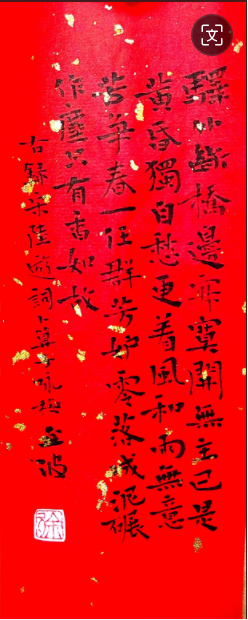 驛外斷橋邊寂寞開無主已是
黃昏獨自愁更着風和雨無意
苦爭春一任群芳妒零落成泥碾
作塵只有香如故
右録宋陸游詞卜算子咏梅 波